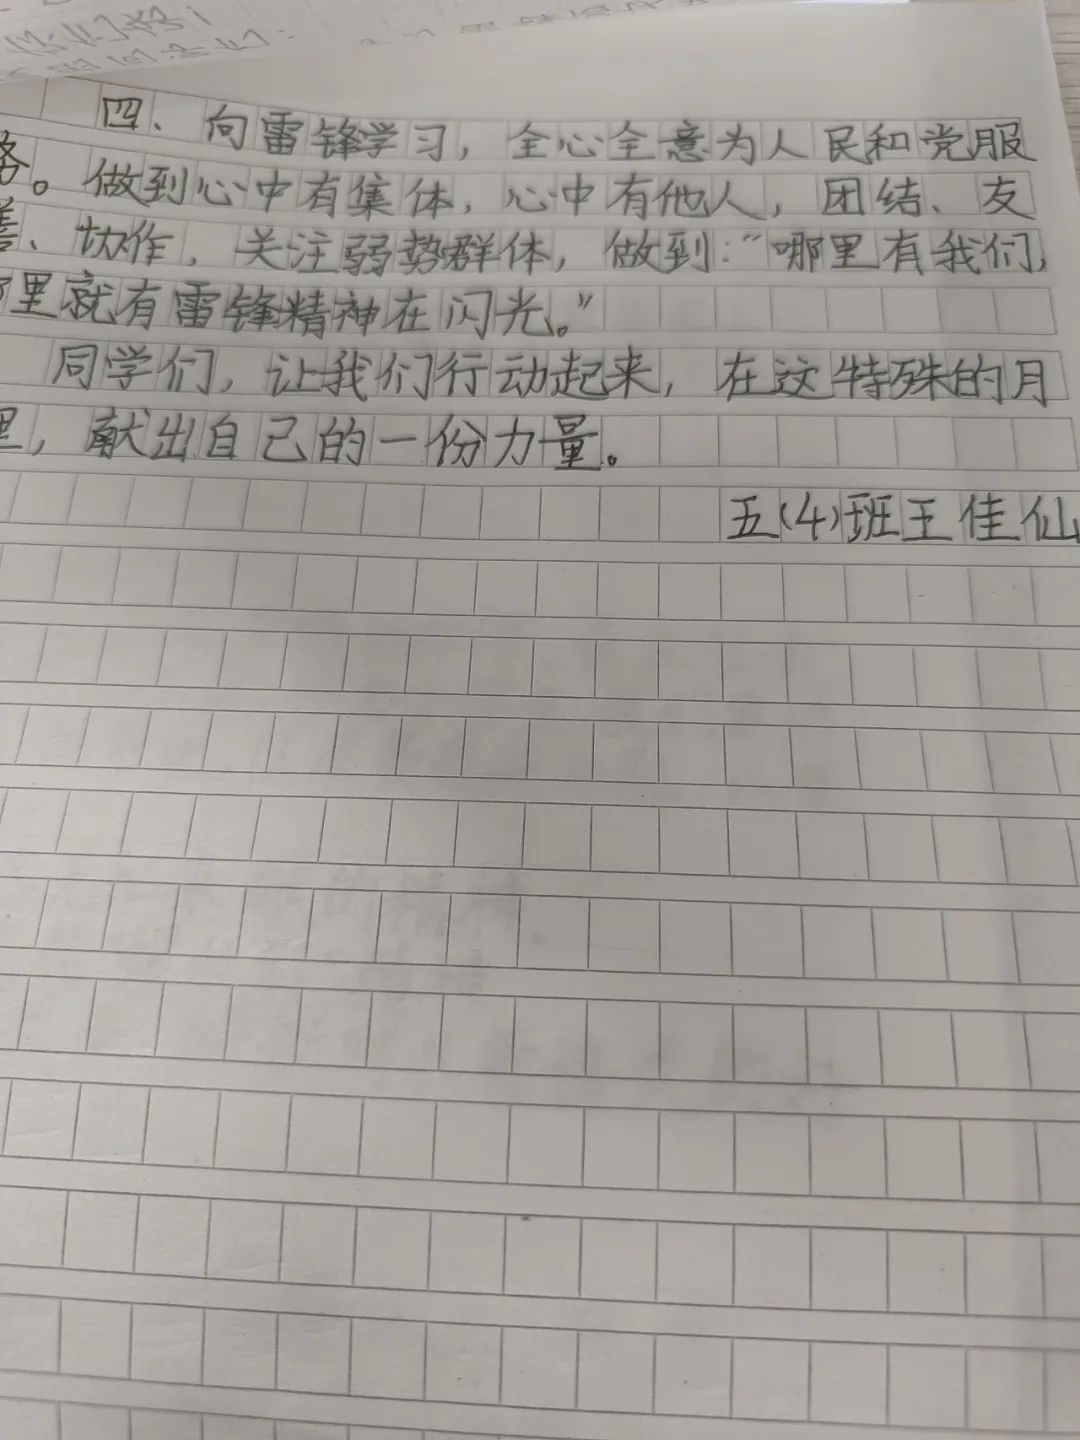 你们好！
四、向雷锋学习，全心全意为人民和党服
务。做到心中有集体，心中有他人，团结、友
善、协作，关注弱势群体，做到：“哪里有我们，
哪里就有雷锋精神在闪光。”
同学们，让我们行动起来，在这特殊的月
里，献出自己的一份力量。
五（4）班王佳仙